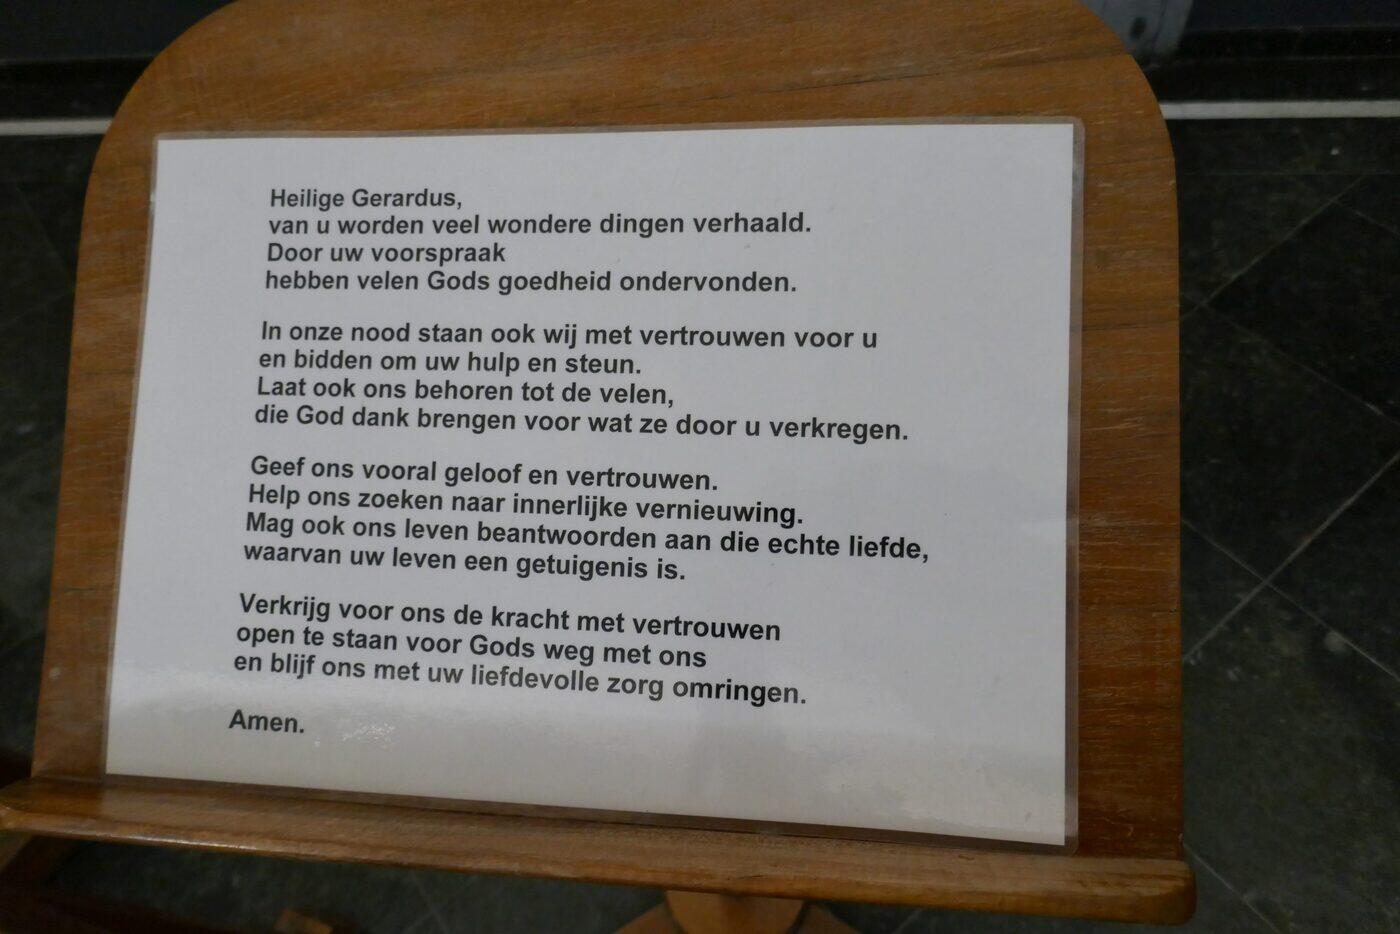 Heilige Gerardus,
van u worden veel wondere dingen verhaald.
Door uw voorspraak
hebben velen Gods goedheid ondervonden.
In onze nood staan ook wij met vertrouwen voor u
en bidden om uw hulp en steun.
Laat ook ons behoren tot de velen,
die God dank brengen voor wat ze door u verkregen.
Geef ons vooral geloof en vertrouwen.
Help ons zoeken naar innerlijke vernieuwing.
Mag ook ons leven beantwoorden aan die echte liefde,
waarvan uw leven een getuigenis is.
Verkrijg voor ons de kracht met vertrouwen
open te staan voor Gods weg met ons
en blijf ons met uw liefdevolle zorg omringen.
Amen.